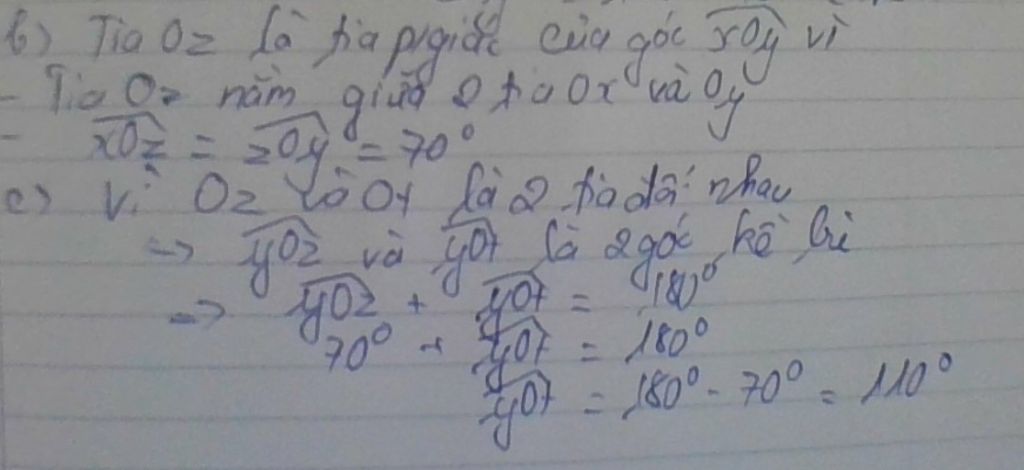 b) Tia Oz là tia p/giác của góc xOy vì
- Tia Oz nằm giữa 2 tia Ox và Oy
- xOz = zOy = 70°
c) Vì Oz và Ot là 2 tia đối nhau
=> yOz và yOt là 2 góc kề bù
=> yOz + yOt = 180°
70° + yOt = 180°
yOt = 180° - 70° = 110°